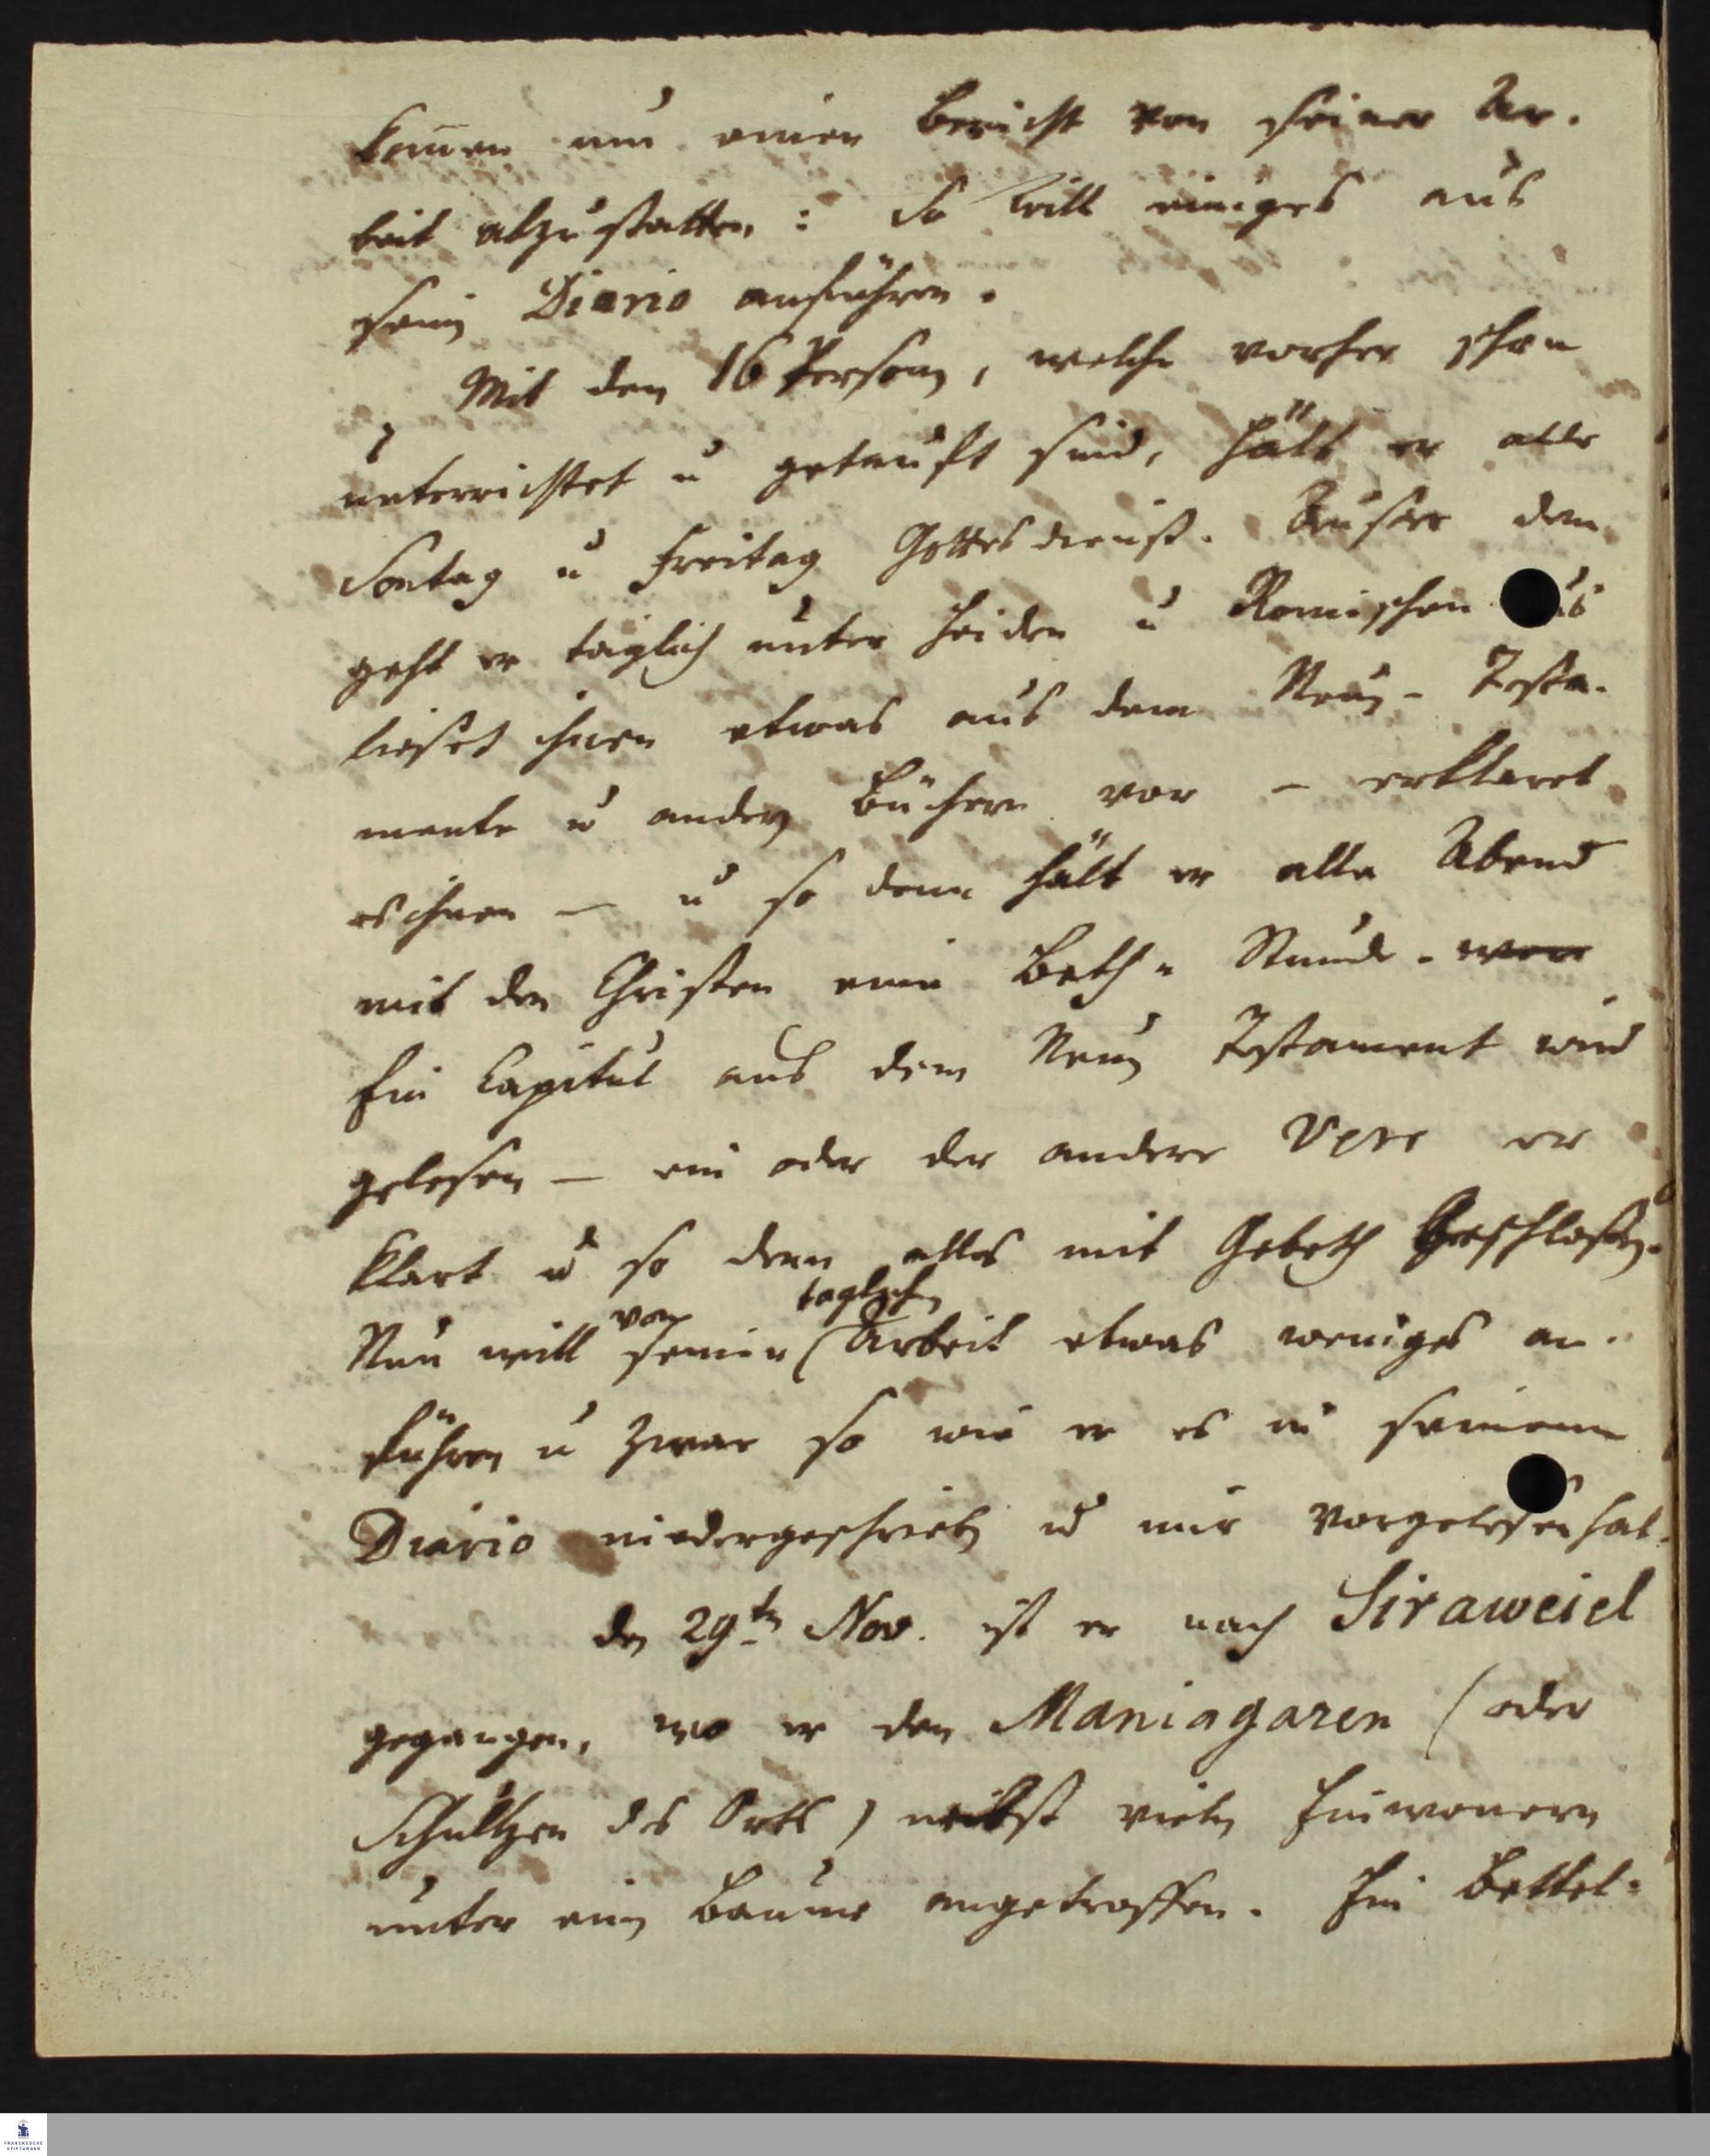 komen um einen Bericht von seiner Ar-
beit abzustatten: So will einiges aus
sein Diario anführen.
Mit den 16 Person, welche vorher schon
unterrichtet u getauft sind, hält er alle
Sontag u Freitag Gottesdienst. Ausser dem
geht er täglich unter Heiden u Romischen aus
lieset ihnen etwas aus dem Neuen Testa-
mente u andern Büchern vor – erklaret
es ihnen – u so denn hält er alle Abend
mit den Christen eine Beth- Stunde.
Ein Capitul aus dem Neuen Testament wird
gelesen – ein oder der andere Vers er
klart u so denn alles mit Gebeth Geschlossen.
von täglichen
Nun will seiner Arbeit etwas weniges an-
führen u zwar so wie er es in seinem
Diario niedergeschrieben u mir vorgelesen hat.
den 29ten Nov. ist er nach Siraweiel
gegangen, wo er den Maniagaren (oder
Schultzen des Orts) nebst vielen Einwonern
unter ein Baume angetroffen. Ein Bettel-
FRANCKESCHE
STIFTUNGEN